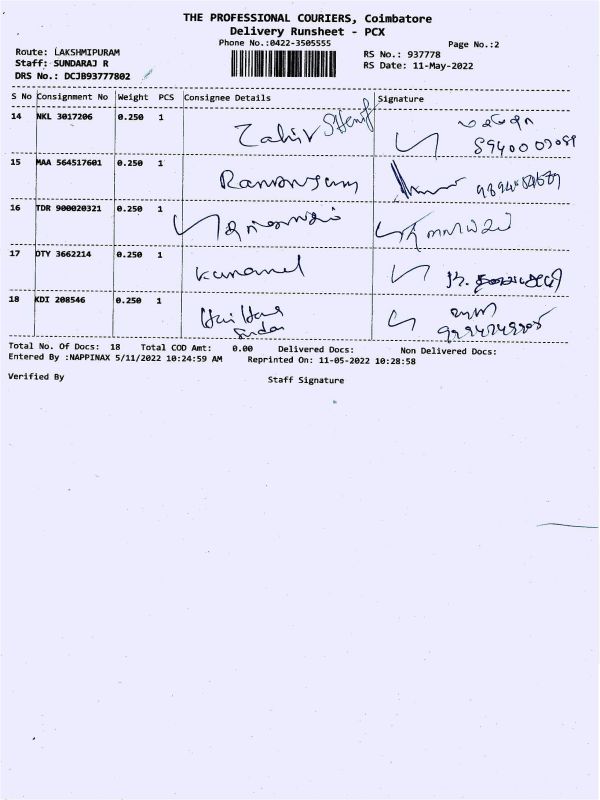 THE PROFESSIONAL COURIERS, Coimbatore
Delivery Runsheet - PCX
Phone No.:0422-3505555
Page No.:2
Route: LAKSHMIPURAM
Staff: SUNDARAJ R
DRS No.: DCJB93777802
RS No.: 937778
RS Date: 11-May-2022
S No Consignment No Weight PCS Consignee Details Signature
14 NKL 3017206 0.250 1 Zahir
15 MAA 564517601 0.250 1
16 TDR 900020321 0.250 1
17 OTY 3662214 0.250 1
18 KDI 208546 0.250 1 Hari Hara
Total No. Of Docs: 18 Total COD Amt: 0.00 Delivered Docs: Non Delivered Docs:
Entered By :NAPPINAX 5/11/2022 10:24:59 AM Reprinted On: 11-05-2022 10:28:58
Verified By Staff Signature